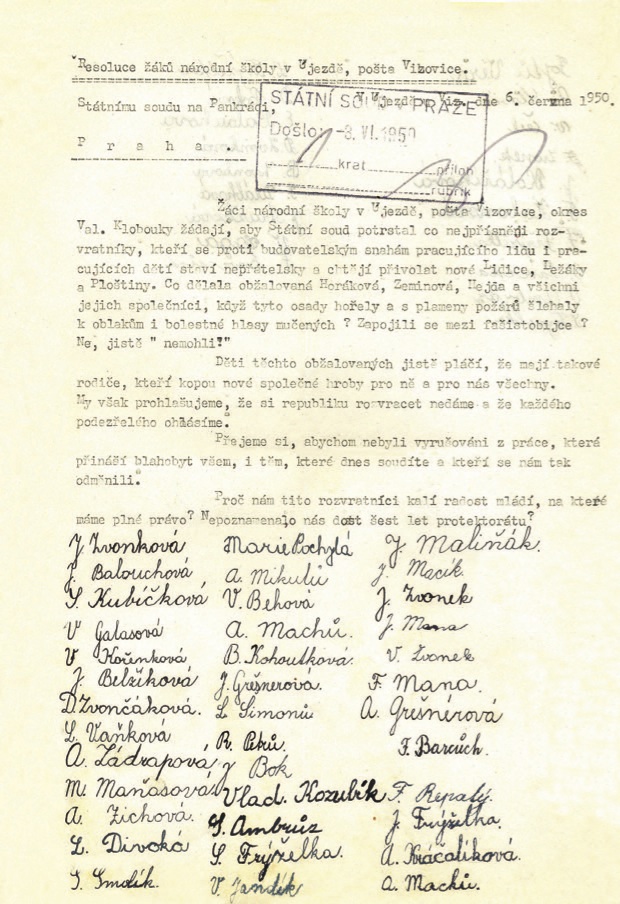 Resoluce žáků národní školy v Újezdě, pošta Vizovice.
Státnímu soudu na Pankráci, V Újezdě Viz. dne 6. června 1950.
STÁTNÍ SOUD PRAZE
Došlo: -8. VI. 1950
P r a h a
krat příloh
rubrik
Žáci národní školy v Újezdě, pošta Vizovice, okres
Val. Klobouky žádají, aby Státní soud potrstal co nejpřísněji roz-
vratníky, kteří se proti budovatelským snahám pracujícího lidu i pra-
cujících dětí staví nepřátelsky a chtějí přivolat nové Lidice, Ležáky
a Ploštiny. Co dělala obžalovaná Horáková, Zeminová, Hejda a všichni
jejich společníci, když tyto osady hořely a s plameny požárů šlehaly
k oblakům i bolestné hlasy mučených ? Zapojili se mezi fašistobijce ?
Ne, jistě " nemohli!"
Děti těchto obžalovaných jistě pláčí, že mají takové
rodiče, kteří kopou nové společné hroby pro ně a pro nás všechny.
My však prohlašujeme, že si republiku rozvracet nedáme a že každého
podezřelého ohlásíme.
Přejeme si, abychom nebyli vyrušováni z práce, která
přináší blahobyt všem, i těm, které dnes soudíte a kteří se nám tak
odměnili.
Proč nám tito rozvratníci kalí radost mládí, na které
máme plné právo? Nepoznamenalo nás dost šest let protektorátu?
J. Zvonková Marie Pochylá J. Maliňák.
J. Balouchová A. Mikulů J. Macík.
S. Kubíčková V. Behová J. Zvonek
V Galasová A. Machů. J. Mana
V Kořenková B. Kohoutková. V. Zvonek
J. Belžíková J. Grešnerová. F. Mana.
D. Zvončáková. L. Šimonů A. Grešnérová
L. Vaňková R. Petrů. F. Barcuch.
A. Zádrapová J Bok
M. Maňasová Vlad. Kozubík F. Repatý.
A. Zichová. S. Ambrůz J. Frýželka.
L. Divoká S. Frýželka. A. Kráčalíková.
S. Smolík. V. Jandík A. Machů.